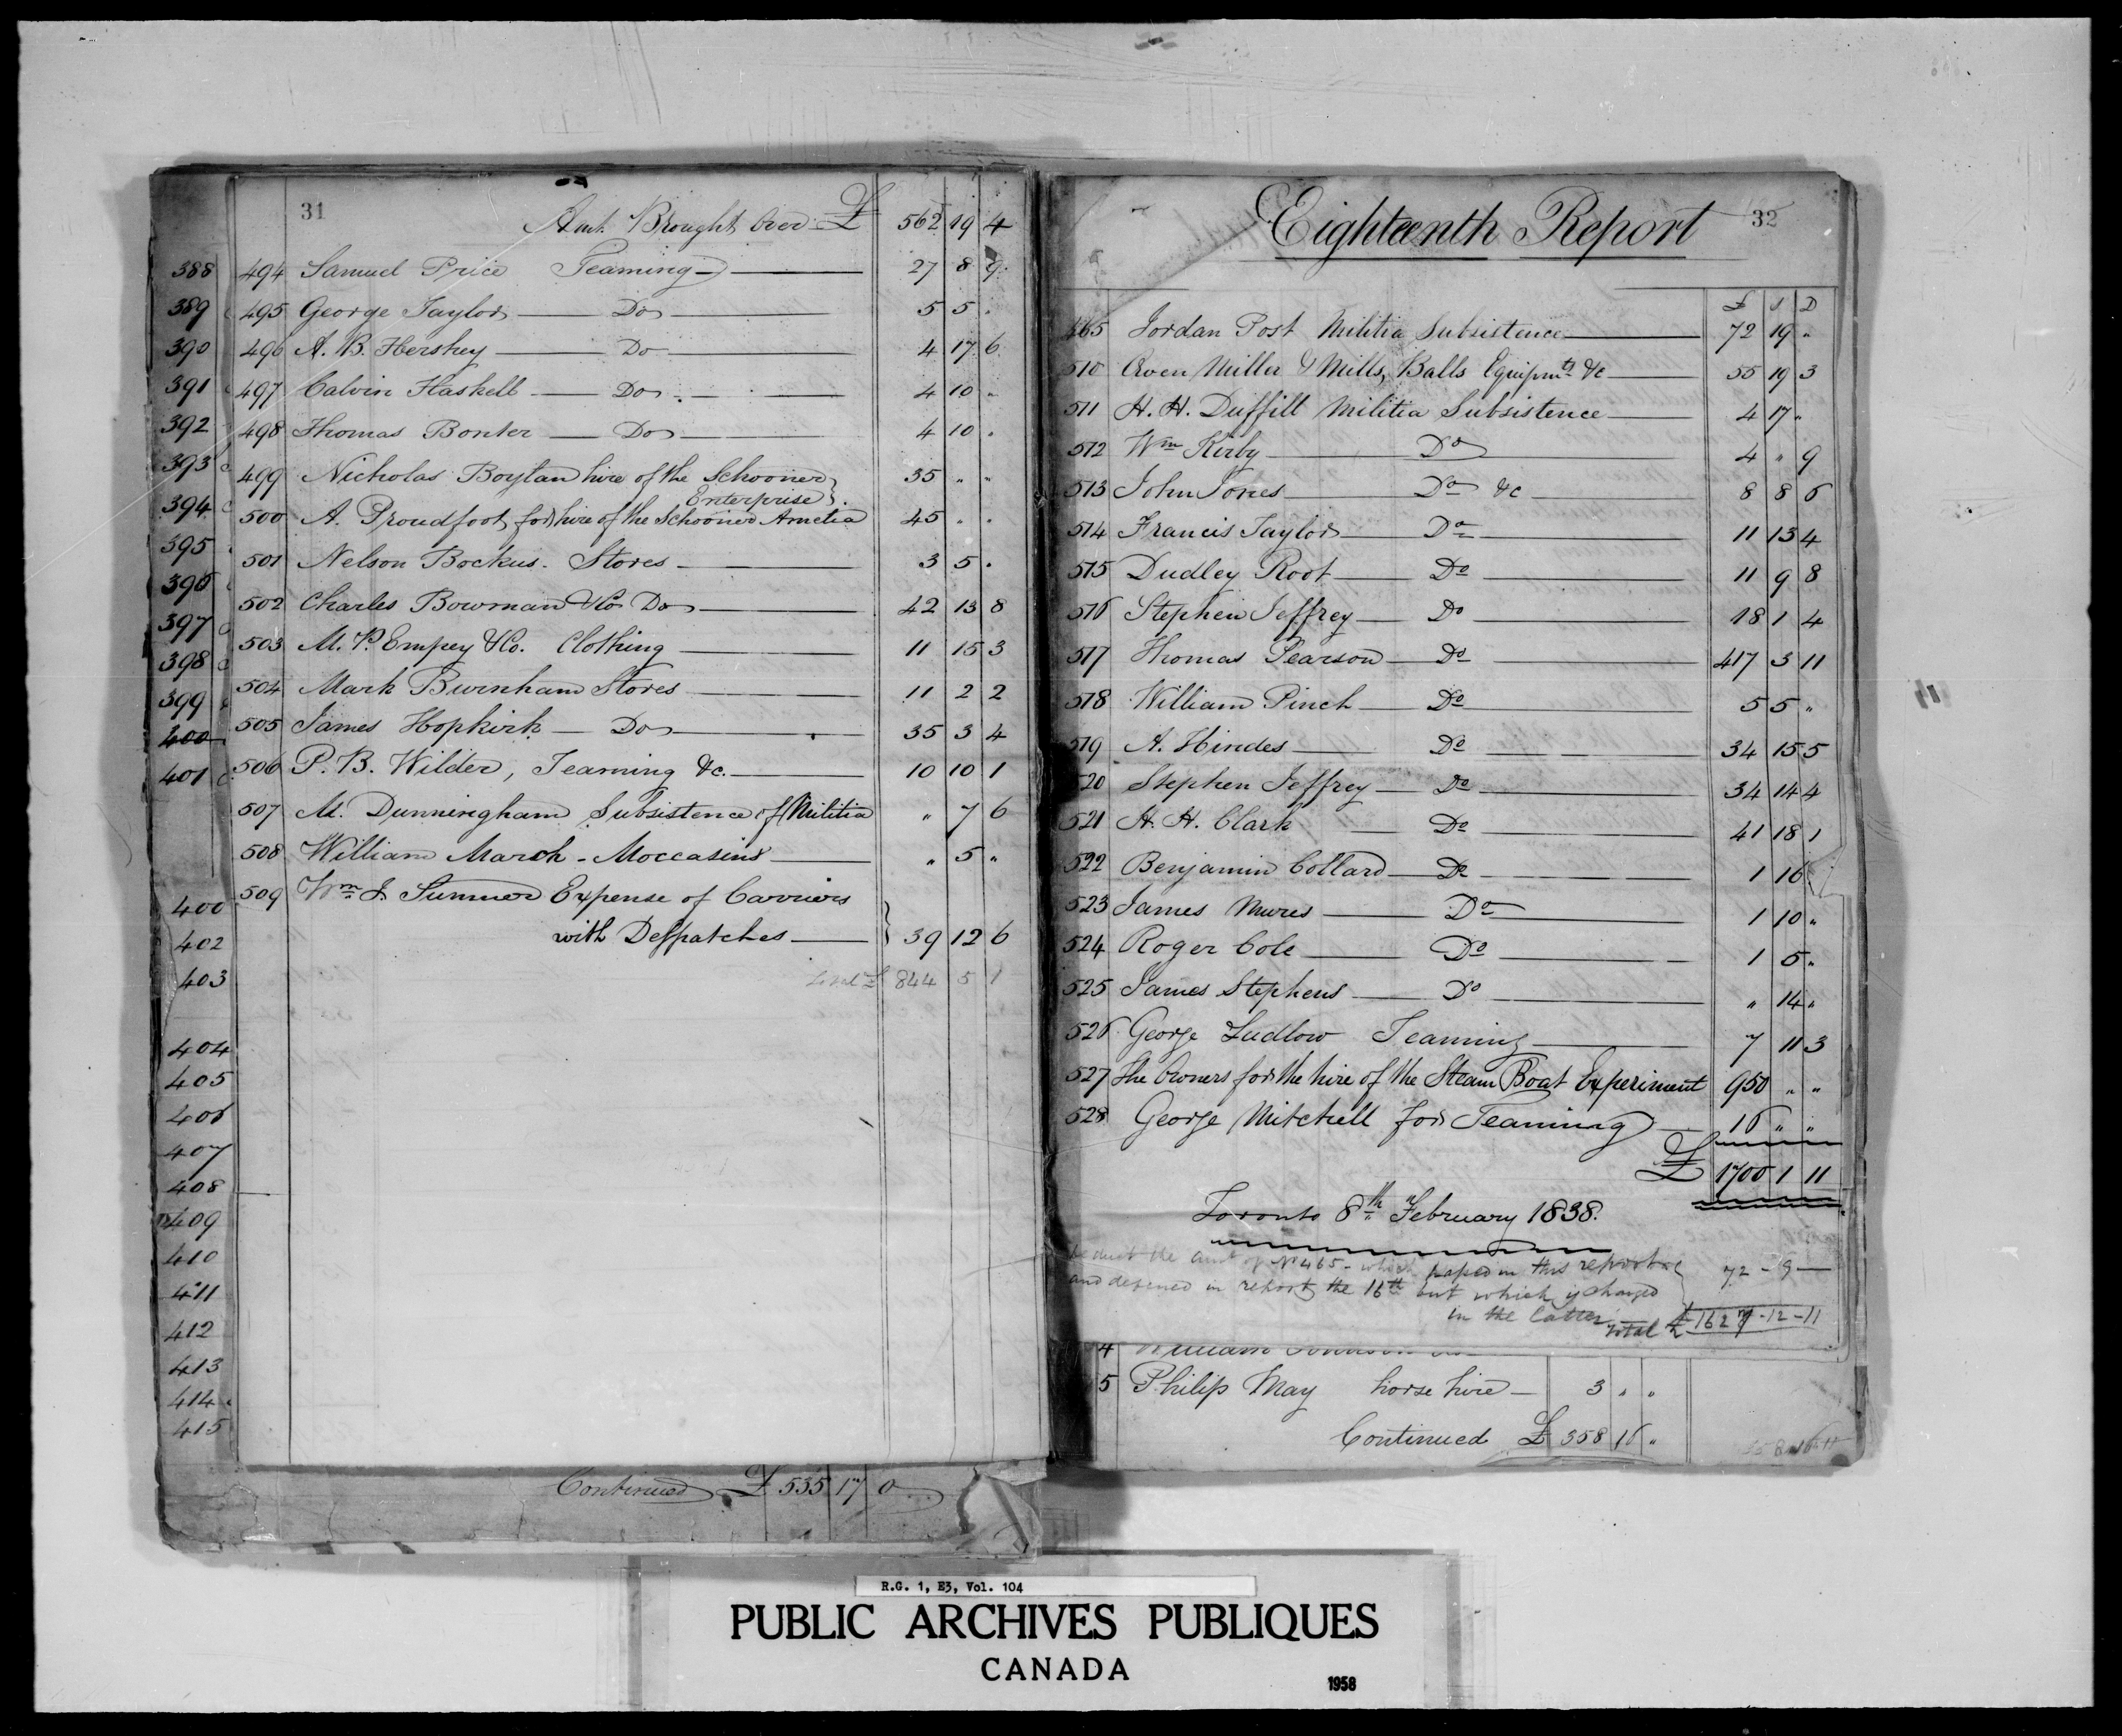 31
Amt. Brought Over £ 562 19 4
388 494 Samuel Price Teaming 27 8 9
389 495 George Taylor Do 5 5 "
390 496 A. B. Hershey Do 4 17 6
391 497 Calvin Haskell Do 4 10 "
392 498 Thomas Bonter Do 4 10 "
393 499 Nicholas Boylan hire of the Schooner 35 " "
Enterprise
394 500 A. Proudfoot for hire of the Schooner Amelia 45 " "
395 501 Nelson Bockus. Stores 3 5 "
396 502 Charles Bowman & Co Do 42 13 8
397 503 M. P. Empey & Co. Clothing 11 15 3
398 504 Mark Burnham Stores 11 2 2
399 505 James Hopkirk Do 35 3 4
400
401 506 P. B. Wilder, Teaming &c. 10 10 1
507 M. Dunningham Subsistence of Militia " 7 6
508 William March - Moccasins " 5 "
400 509 Wm J. Sumner Expense of Carriers
402 with Despatches 39 12 6
403 Total £ 844 5 1
404
405
406
407
408
409
410
411
412
413
414
415
Continued £ 535 17 0
Eighteenth Report 32
£ S D
465 Jordan Post Militia Subsistence 72 19 "
510 Owen Miller & Mills, Balls Equipmts &c 55 19 3
511 H. H. Duffill Militia Subsistence 4 17 "
512 Wm Kirby Do 4 " 9
513 John Jones Do &c 8 8 6
514 Francis Taylor Do 11 13 4
515 Dudley Root Do 11 9 8
516 Stephen Jeffrey Do 18 1 4
517 Thomas Pearson Do 417 3 11
518 William Pinch Do 5 5 "
519 A. Hindes Do 34 15 5
520 Stephen Jeffrey Do 34 14 4
521 H. H. Clark Do 41 18 1
522 Benjamin Collard Do 1 16
523 James Mures Do 1 10 "
524 Roger Cole Do 1 5 "
525 James Stephens Do " 14 "
526 George Ludlow Teaming 7 11 3
527 The Owners for the hire of the Steam Boat Experiment 950 " "
528 George Mitchell for Teaming 16 " "
£ 1700 1 11
Toronto 8th February 1838.
deduct the amt of No 465 - which passed in this report 72 - 9 -
and defered in report the 16th but which is charged
in the latter
Total £ 1627 - 12 - 11
4 William Johnson
5 Philip May horse hire 3 " "
Continued £ 358 16 "
R.G. 1, E3, Vol. 104
PUBLIC ARCHIVES PUBLIQUES
CANADA
1958